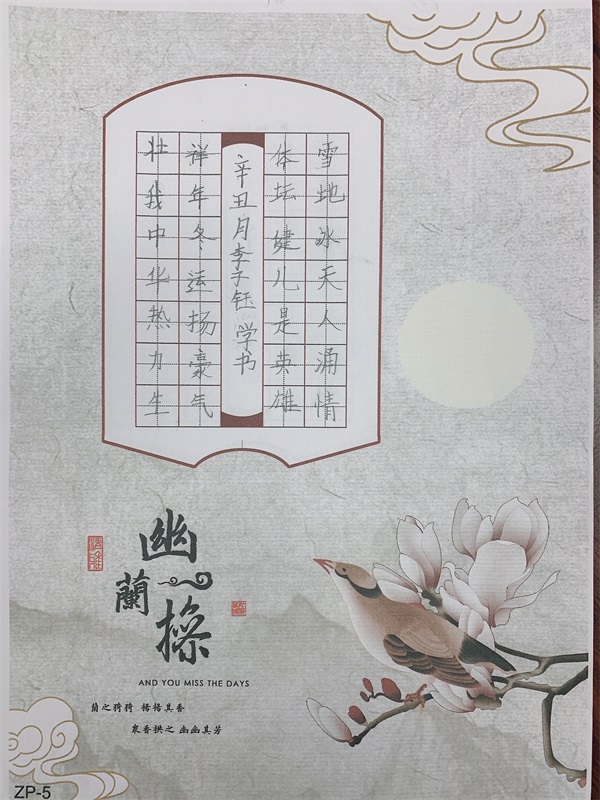 雪地冰天人涌情
体坛健儿是英雄
辛丑月李子钰学书
祥年冬运扬豪气
壮我中华热力生
幽蘭操
AND YOU MISS THE DAYS
蘭之猗猗 揚揚其香
眾香拱之 幽幽其芳
ZP-5